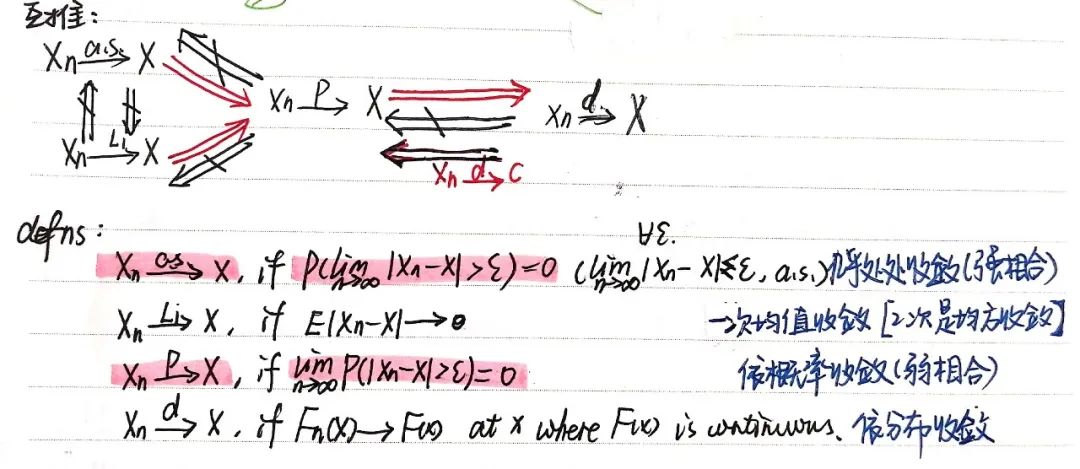 互推:
Xn a.s.→ X
Xn P→ X
Xn d→ X
Xn L1→ X
Xn d→ C
defns:
∀ε.
Xn a.s.→ X, if P(lim n→∞ |Xn-X|>ε)=0 (lim n→∞ |Xn-X|≤ε, a.s.) 几乎处处收敛(强相合)
Xn L1→ X, if E|Xn-X|→0 一次均值收敛[2次是均方收敛]
Xn P→ X, if lim n→∞ P(|Xn-X|>ε)=0 依概率收敛(弱相合)
Xn d→ X, if Fn(x)→F(x) at x where F(x) is continuous. 依分布收敛